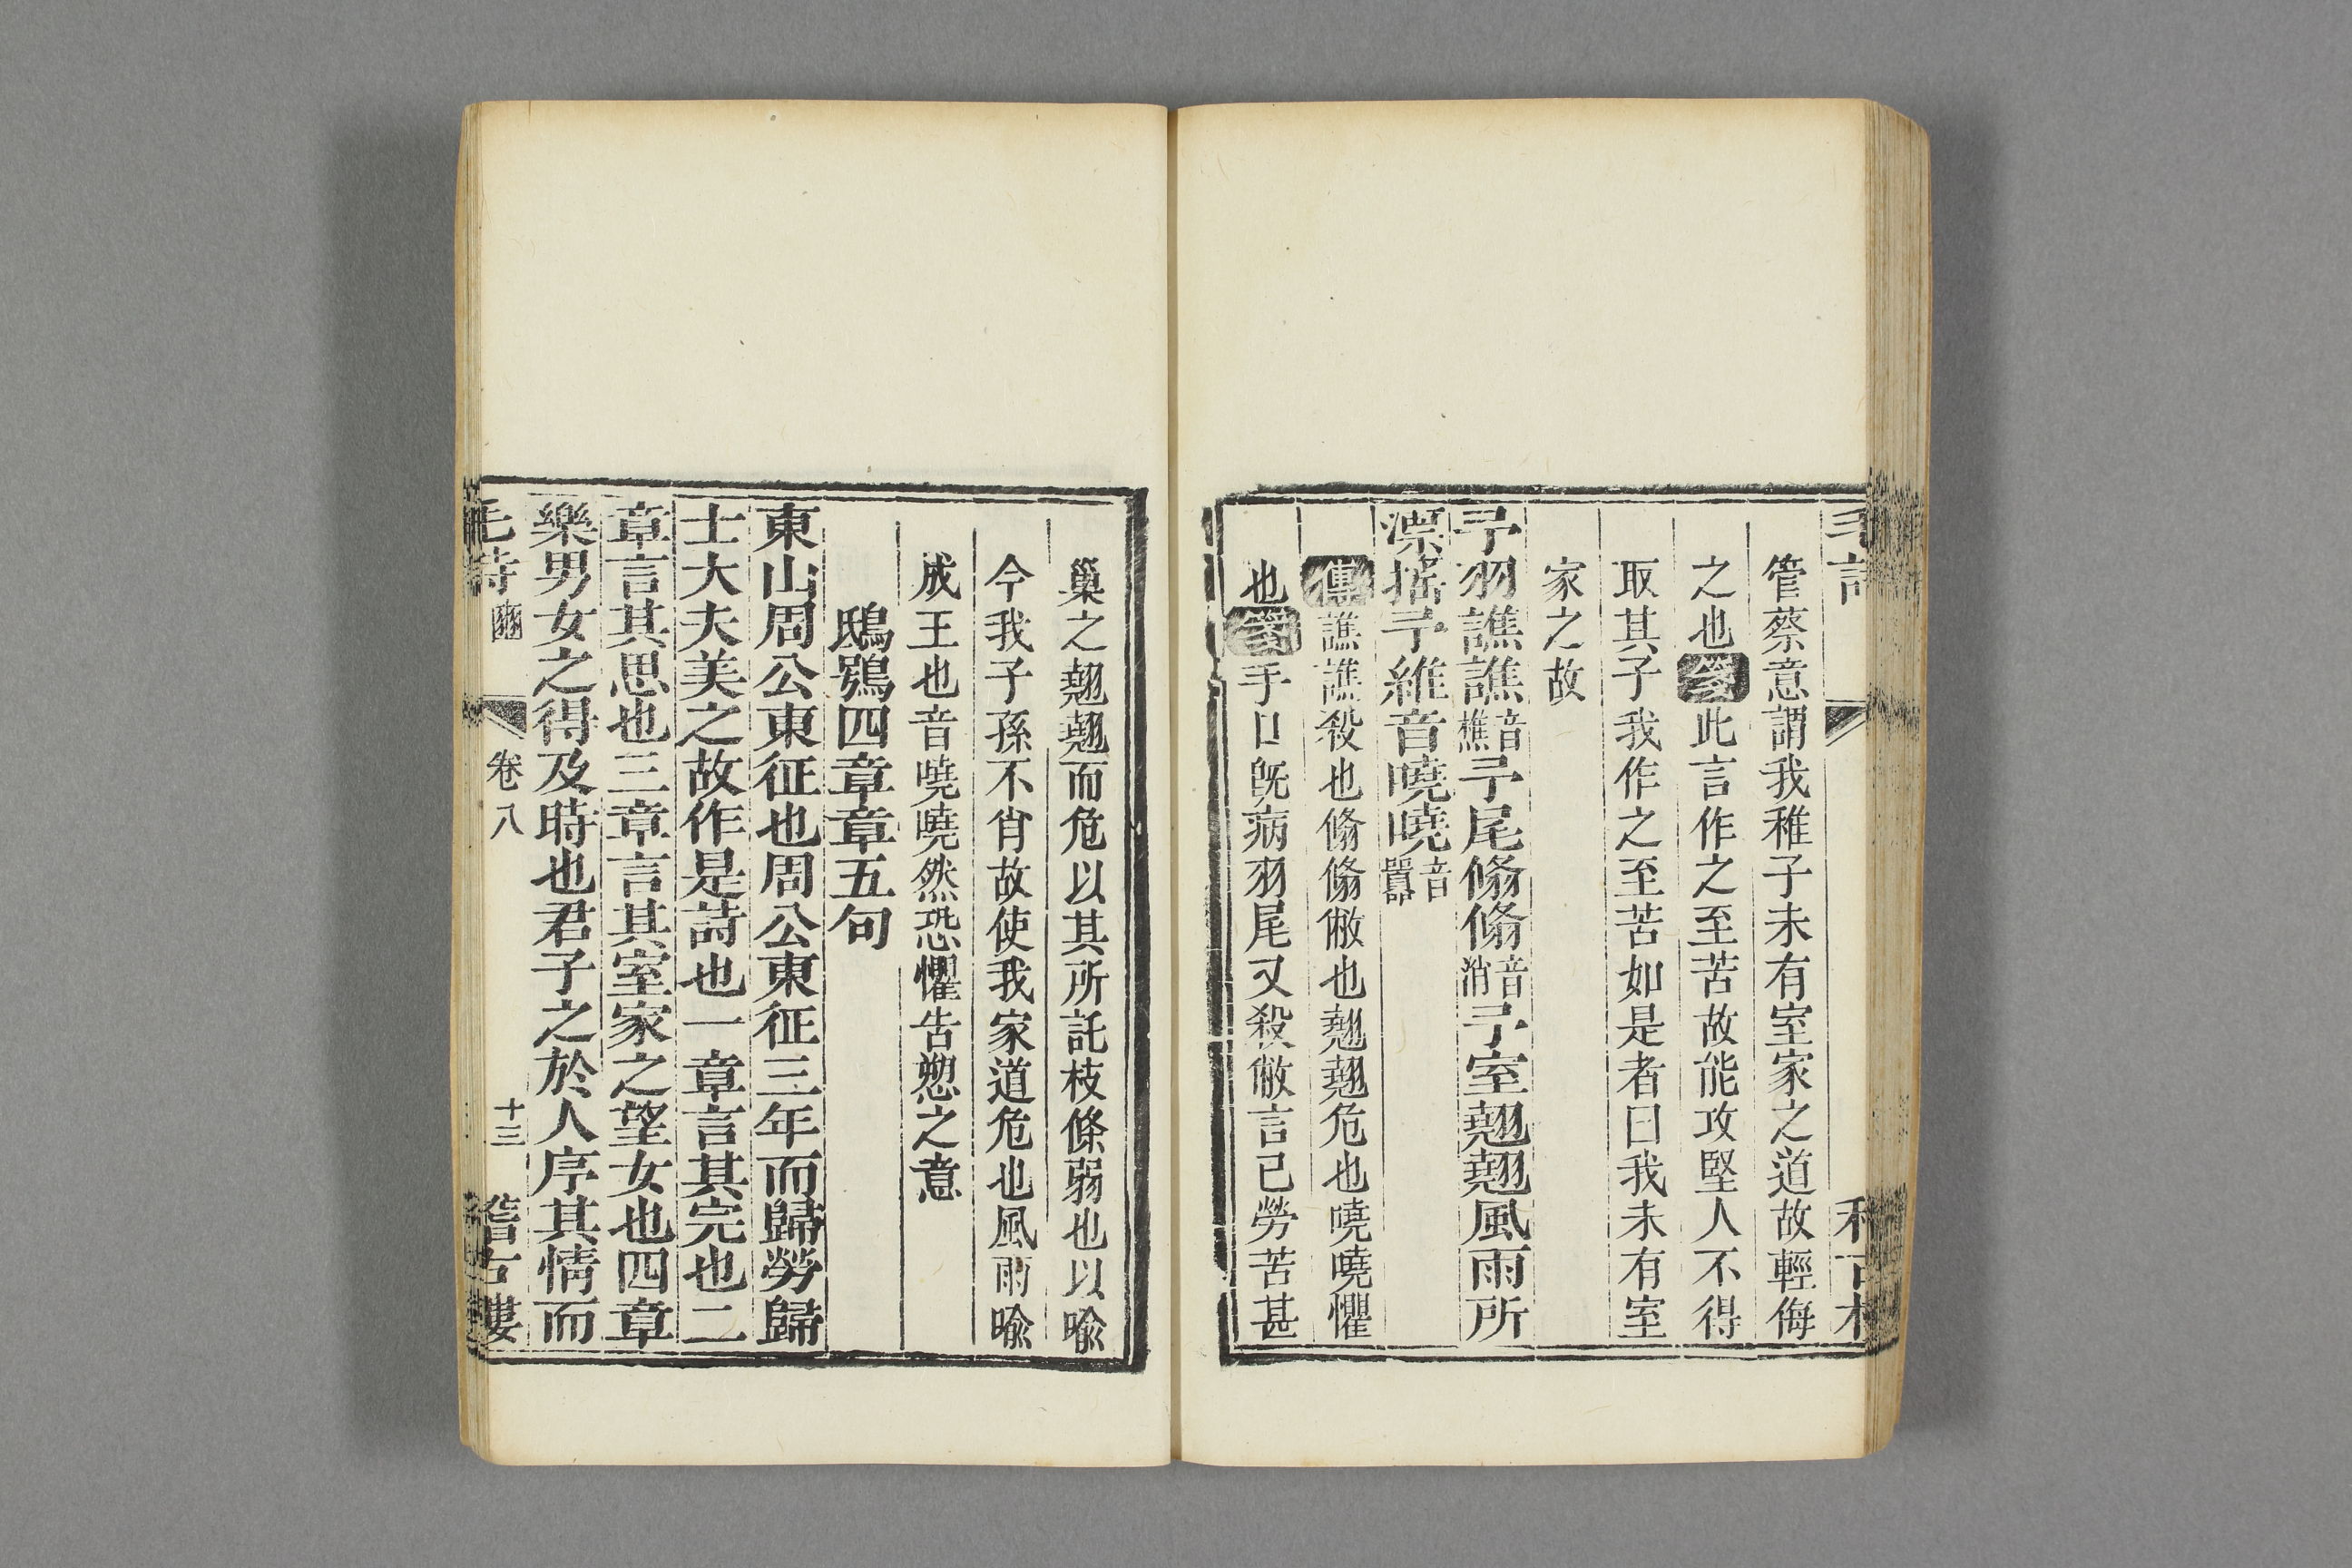 毛詩
管蔡意謂我稚子未有室家之道故輕侮
之也箋此言作之至苦故能攻堅人不得
取其子我作之至苦如是者曰我未有室
家之故
予羽譙譙音樵予尾翛翛音消予室翹翹風雨所
漂搖予維音嘵嘵音囂
傳譙譙殺也翛翛敝也翹翹危也嘵嘵懼
也箋手口既病羽尾又殺敝言己勞苦甚
巢之翹翹而危以其所託枝條弱也以喻
今我子孫不肖故使我家道危也風雨喻
成王也音嘵嘵然恐懼告愬之意
鴟鴞四章章五句
東山周公東征也周公東征三年而歸勞歸
士大夫美之故作是詩也一章言其完也二
章言其思也三章言其室家之望女也四章
樂男女之得及時也君子之於人序其情而
毛詩 豳 卷八 十三 稽古樓